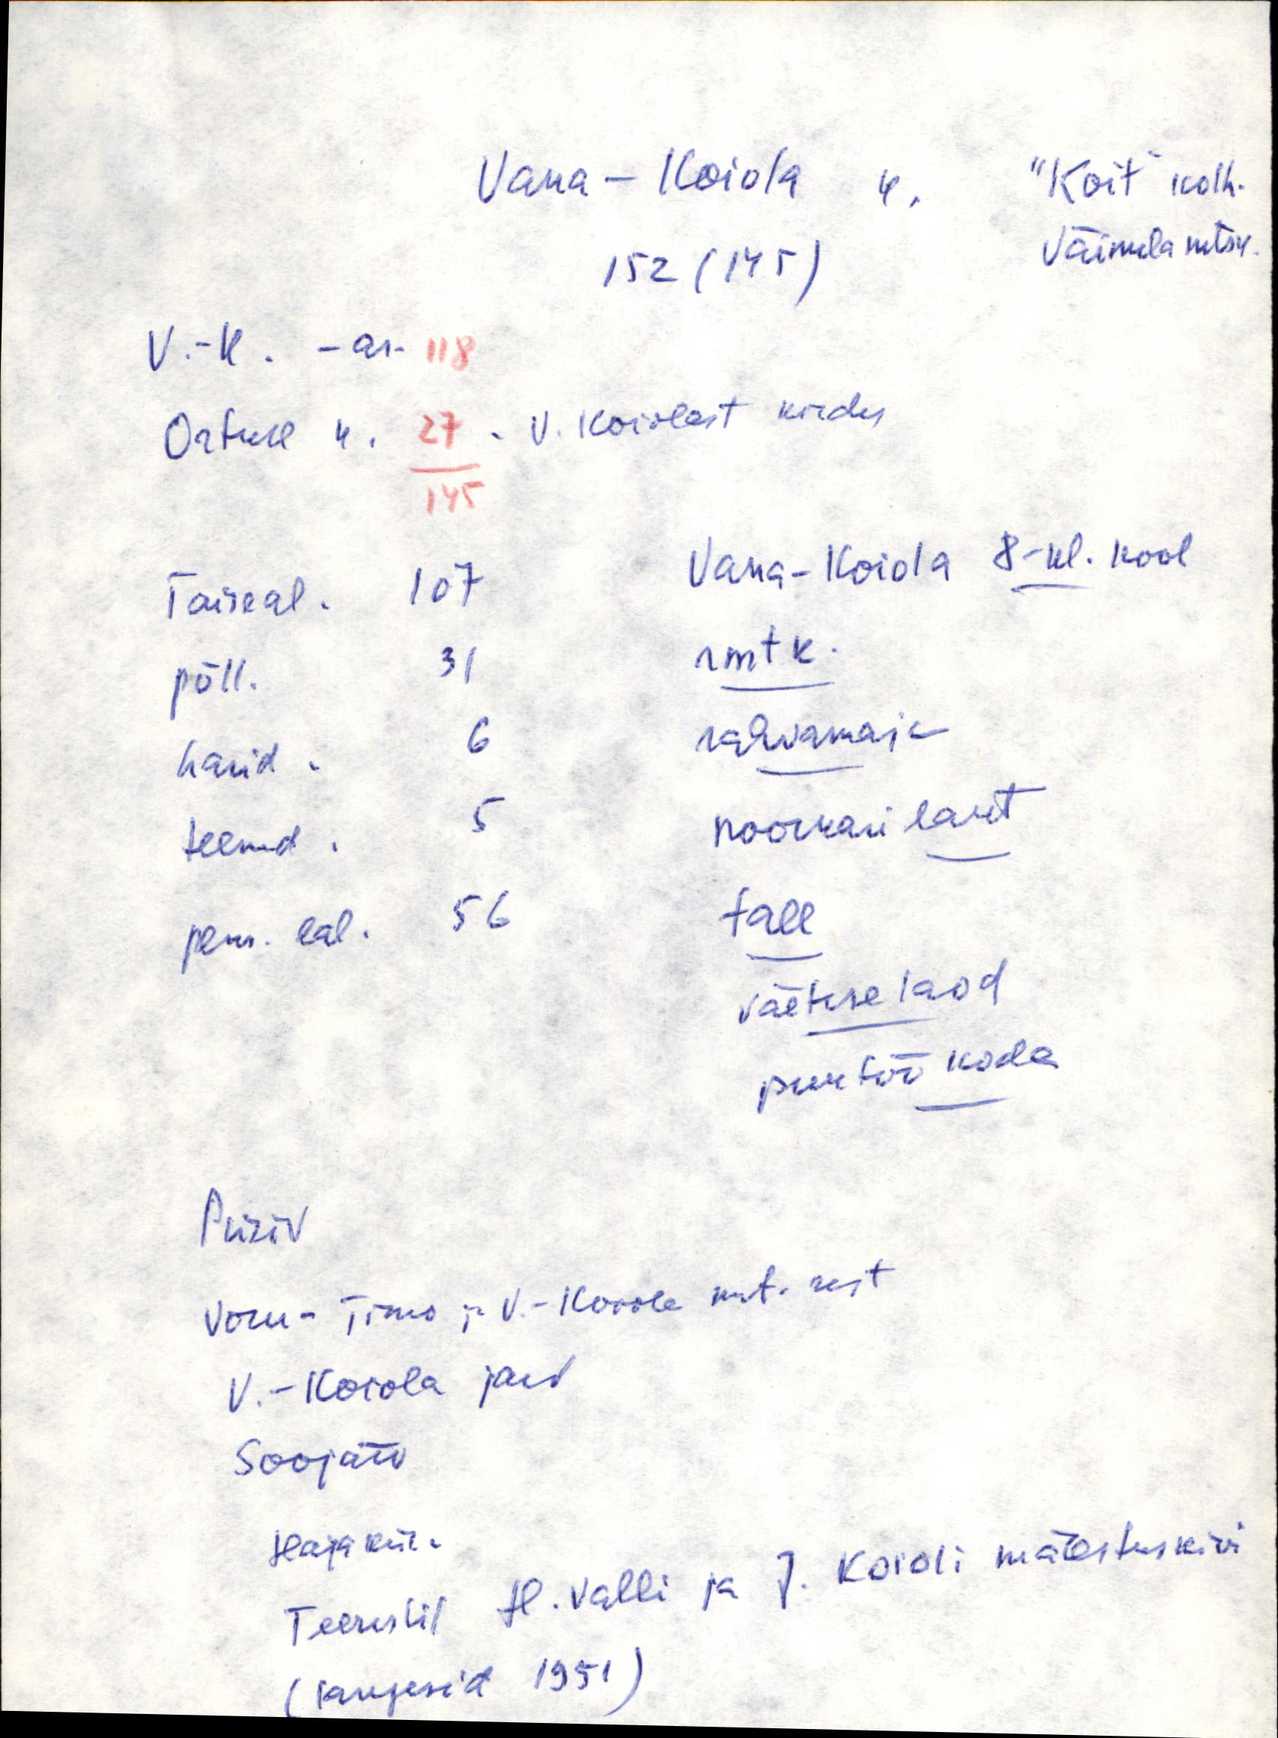 Vana-Koiola k. "Koit" kolh.
152 (145) Väimela mtsk.
V.-K. - as. 118
Oatuse k. 27 - V. Koiolast kirdes
145
Täiseal. 107
põll. 31
harid. 6
teenind. 5
pens. eal. 56
Vana-Koiola 8-kl. kool
rmtk.
rahvamaja
noorkarilaut
tall
väetuselaod
puutöökoda
Piirid
Võru- ja V.-Koiola mnt. rist
V.-Koiola järv
Soojärv
Hajakül.
Teeristil H. Valli ja J. Koioli mälestuskivi
(langesid 1951)